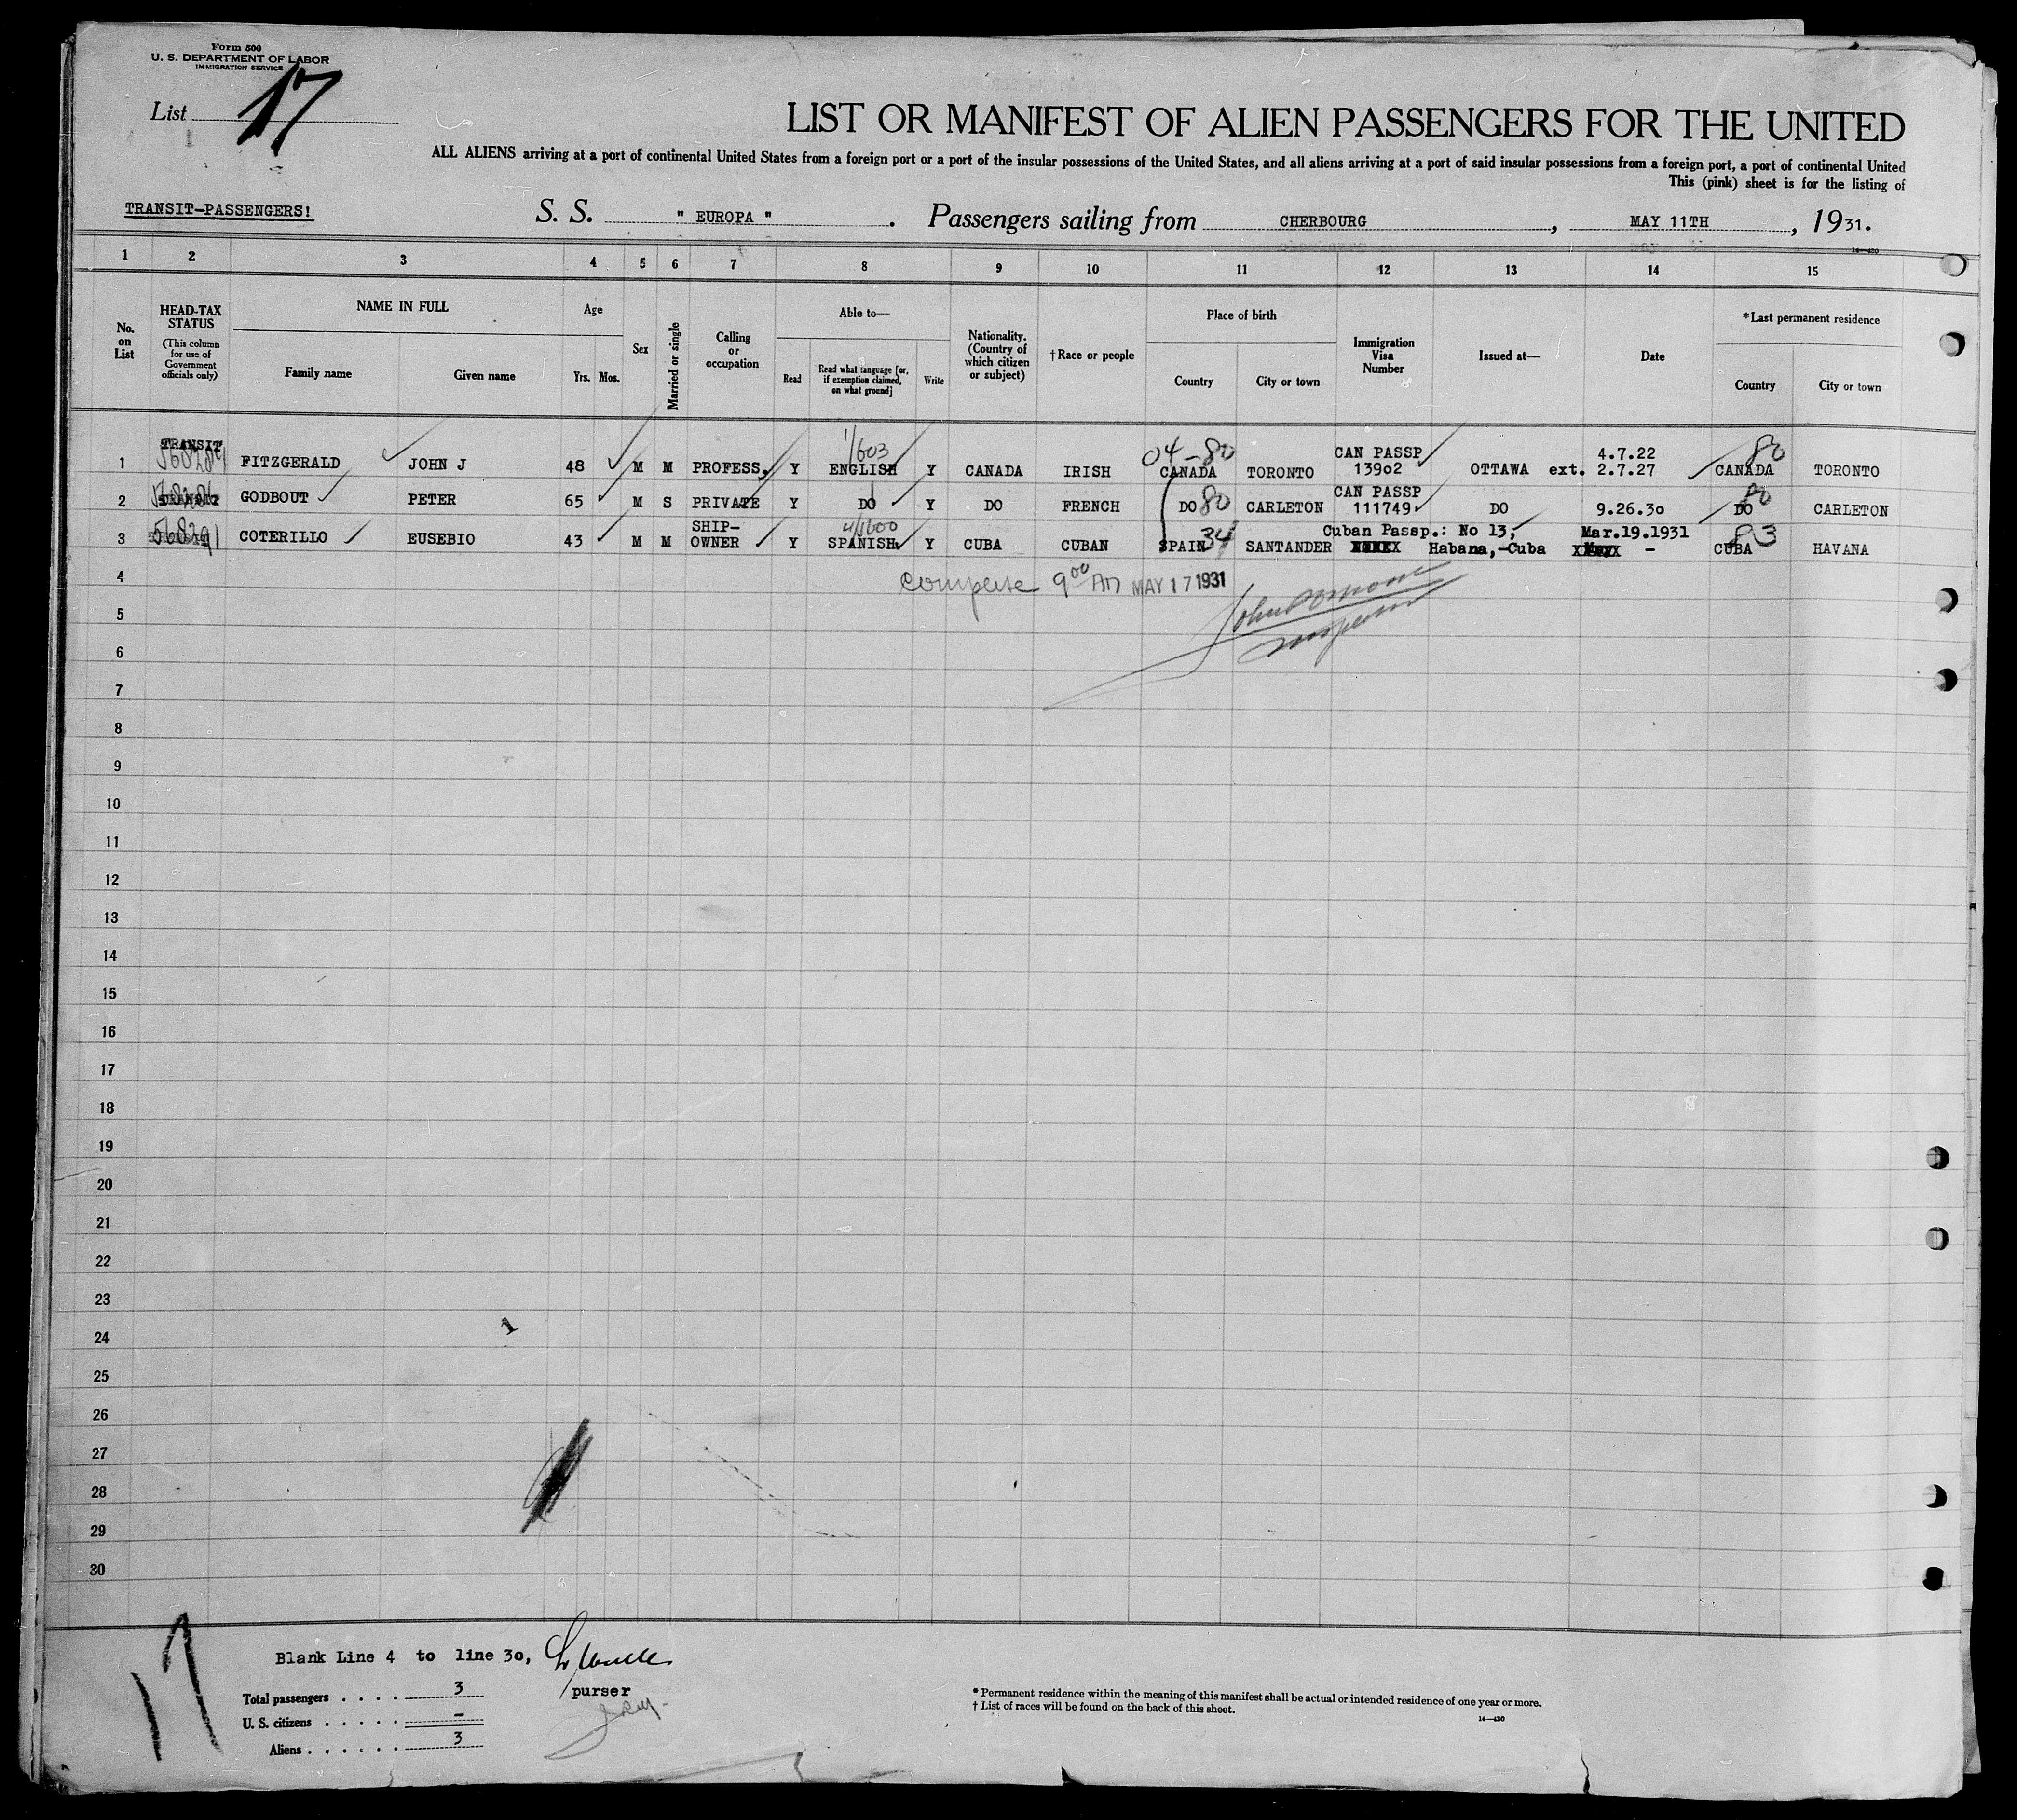 Form 500
U. S. DEPARTMENT OF LABOR
IMMIGRATION SERVICE
List 17
LIST OR MANIFEST OF ALIEN PASSENGERS FOR THE UNITED
ALL ALIENS arriving at a port of continental United States from a foreign port or a port of the insular possessions of the United States, and all aliens arriving at a port of said insular possessions from a foreign port, a port of continental United
This (pink) sheet is for the listing of
TRANSIT-PASSENGERS! S. S. " EUROPA ". Passengers sailing from CHERBOURG, MAY 11TH, 1931.
14-430
1 2 3 4 5 6 7 8 9 10 11 12 13 14 15
No. on List
HEAD-TAX STATUS (This column for use of Government officials only)
NAME IN FULL
Family name Given name
Age
Yrs. Mos.
Sex
Married or single
Calling or occupation
Able to—
Read
Read what language [or, if exemption claimed, on what ground]
Write
Nationality. (Country of which citizen or subject)
†Race or people
Place of birth
Country City or town
Immigration Visa Number
Issued at—
Date
*Last permanent residence
Country City or town
1/603 04-80 80
1 TRANSIT FITZGERALD JOHN J 48 M M PROFESS. Y ENGLISH Y CANADA IRISH CANADA TORONTO CAN PASSP 13902 OTTAWA ext. 4.7.22 2.7.27 CANADA TORONTO
2 GODBOUT PETER 65 M S PRIVATE Y DO Y DO FRENCH DO 80 CARLETON CAN PASSP 111749 DO 9.26.30 DO 80 CARLETON
3 568291 COTERILLO EUSEBIO 43 M M SHIP-OWNER Y 4/1600 SPANISH Y CUBA CUBAN SPAIN 34 SANTANDER Cuban Passp.: No 13, Habana,-Cuba Mar.19.1931 - CUBA 83 HAVANA
4
complete 9 00 AM MAY 17 1931
5
6
7
8
9
10
11
12
13
14
15
16
17
18
19
20
21
22
23
24
25
26
27
28
29
30
17
Blank Line 4 to line 30,
purser
Total passengers . . . . 3
U. S. citizens . . . . . –
Aliens . . . . . . 3
* Permanent residence within the meaning of this manifest shall be actual or intended residence of one year or more.
† List of races will be found on the back of this sheet.
14-430